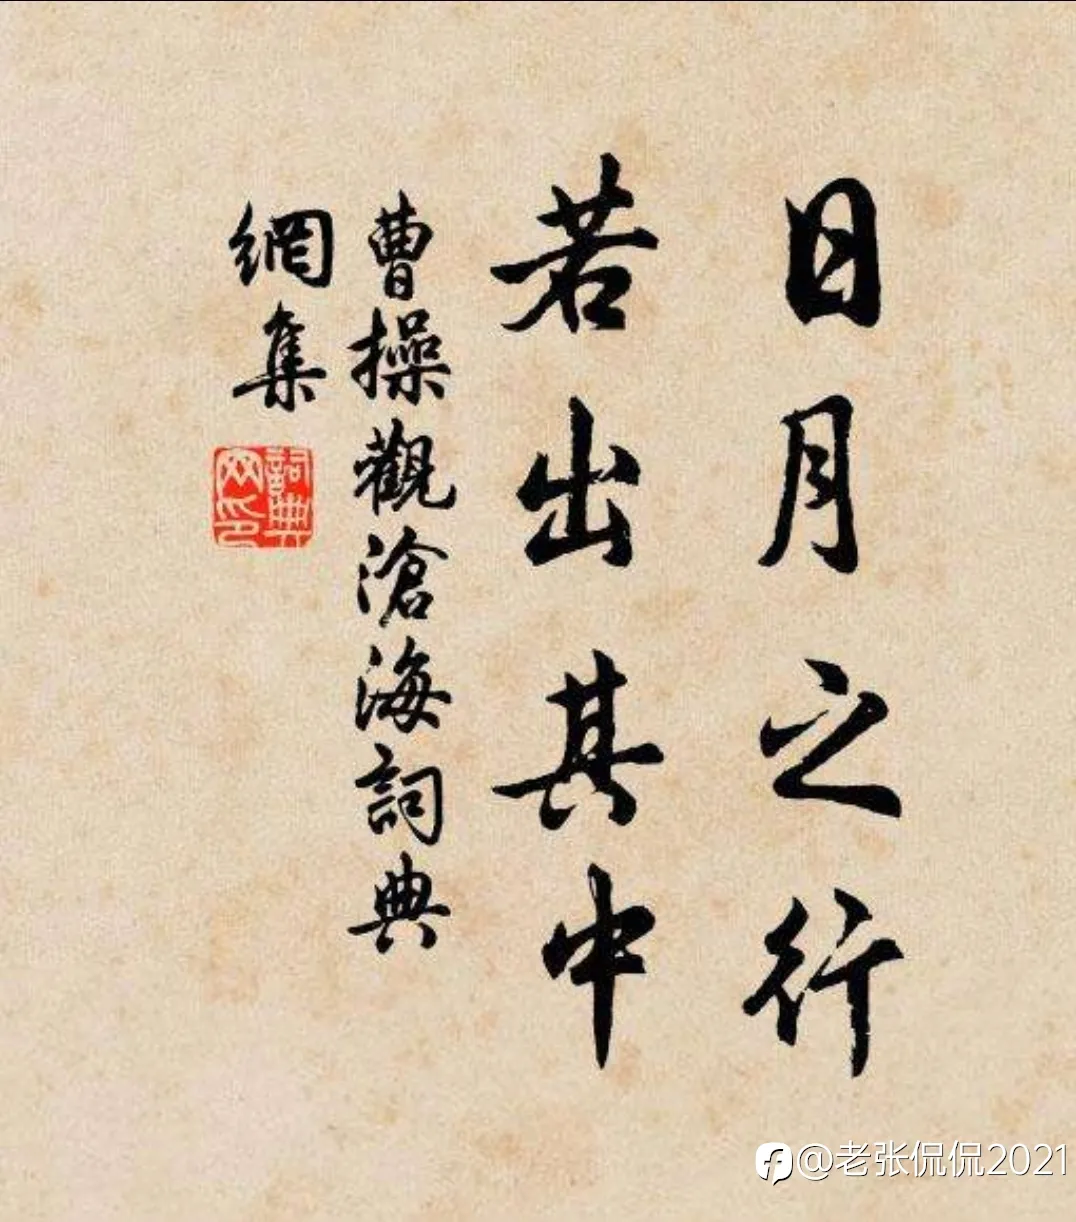 日月之行
若出其中
曹操觀滄海詞典
網集
詞典
网印
@老张侃侃2021